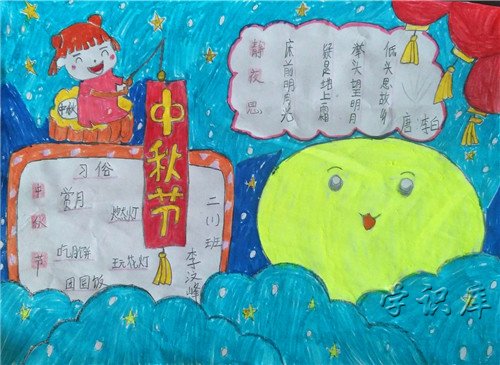 中秋
中秋节
静夜思
床前明月光
疑是地上霜
举头望明月
低头思故乡
唐 李白
习俗
中秋节
赏月 燃灯
吃月饼 玩花灯
团圆饭
二(1)班